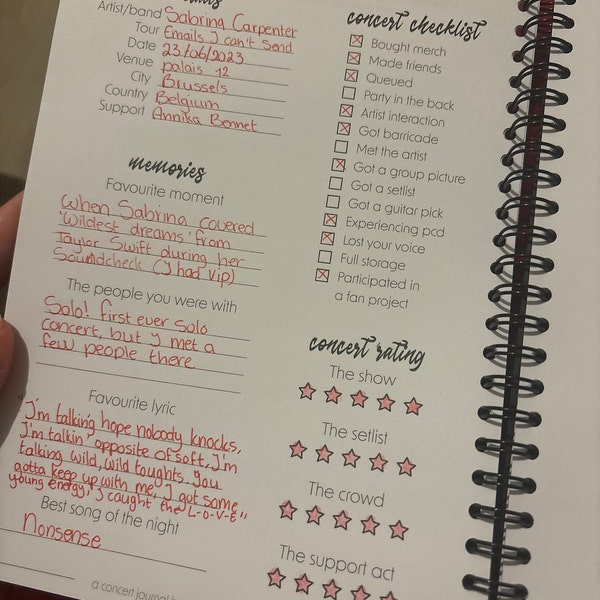 Artist/band Sabrina Carpenter
Tour Emails I can't Send
Date 23/06/2023
Venue palais 12
City Brussels
Country Belgium
Support Annika Bennet
memories
Favourite moment
When Sabrina covered
'Wildest dreams' from
Taylor Swift during her
Soundcheck (I had vip)
The people you were with
Solo! first ever solo
concert, but I met a
few people there
Favourite lyric
"I'm talking hope nobody knocks,
I'm talkin' opposite of soft, I'm
talking wild, wild toughts. You
gotta keep up with me, I got some
young energy, I caught the L-O-V-E"
Best song of the night
Nonsense
a concert journal
concert checklist
Bought merch
Made friends
Queued
Party in the back
Artist interaction
Got barricade
Met the artist
Got a group picture
Got a setlist
Got a guitar pick
Experiencing pcd
Lost your voice
Full storage
Participated in
a fan project
concert rating
The show
The setlist
The crowd
The support act